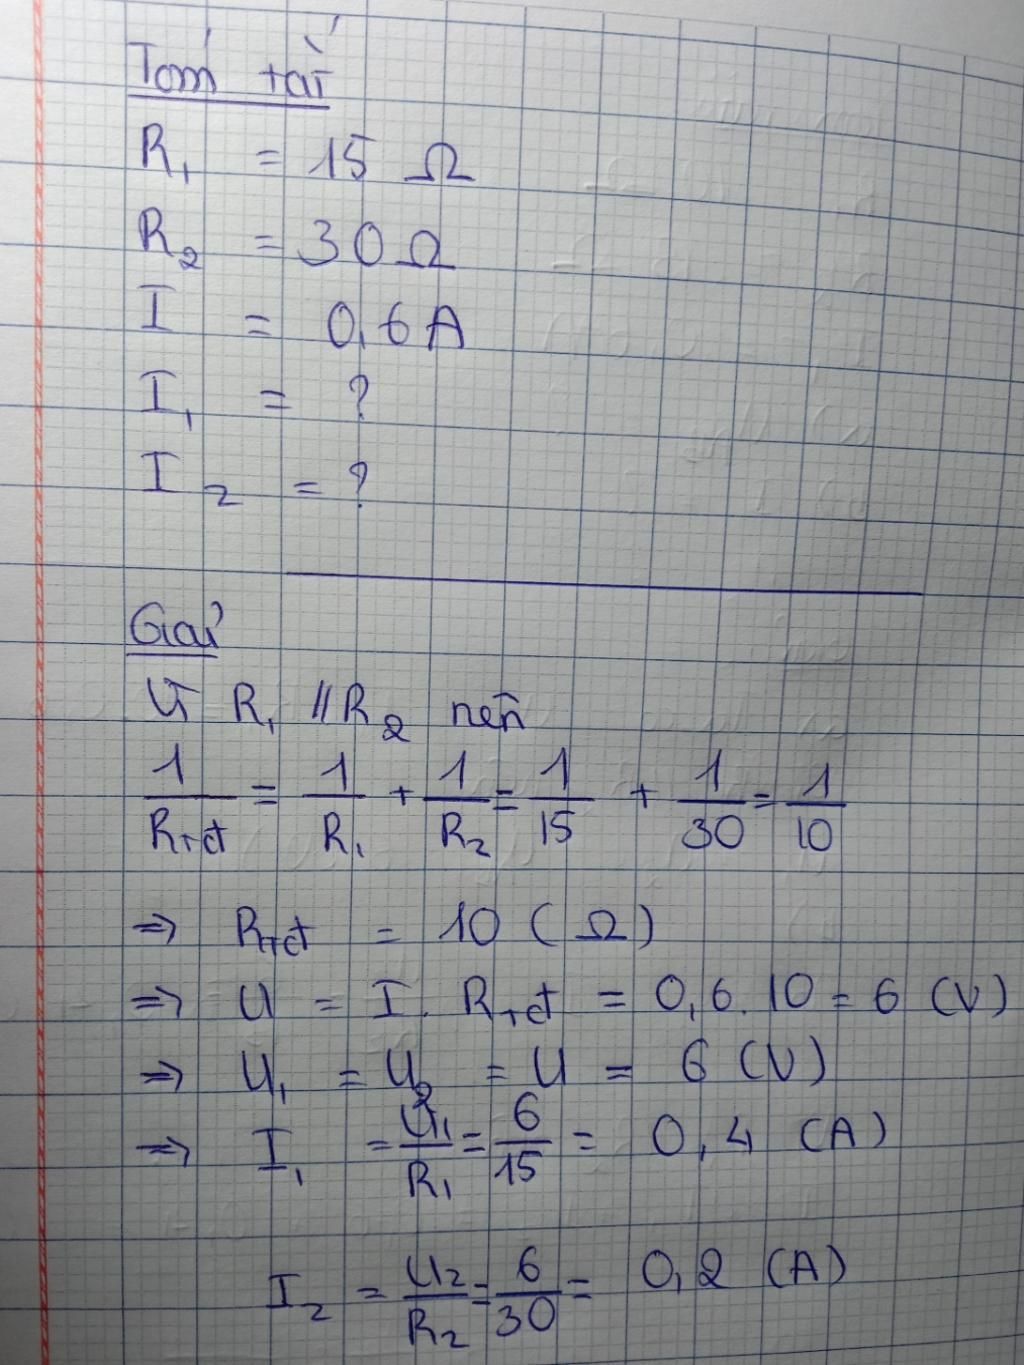 Tóm tắt
R₁ = 15 Ω
R₂ = 30 Ω
I = 0,6 A
I₁ = ?
I₂ = ?
Giải
Vì R₁ // R₂ nên
1/Rtđ = 1/R₁ + 1/R₂ = 1/15 + 1/30 = 1/10
=> Rtđ = 10 (Ω)
=> U = I . Rtđ = 0,6 . 10 = 6 (V)
=> U₁ = U₂ = U = 6 (V)
=> I₁ = U₁/R₁ = 6/15 = 0,4 (A)
I₂ = U₂/R₂ = 6/30 = 0,2 (A)